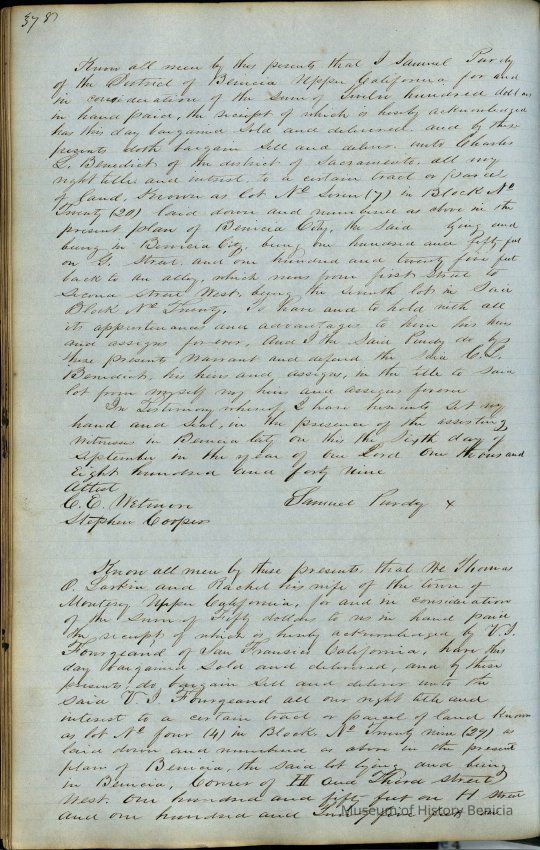 378
Know all men by this presents that I Samuel Purdy
of the District of Benicia Upper California for and
in consideration of the sum of Twelve hundred dollars
in hand paid, the receipt of which is hereby acknowledged
has this day bargained Sold and delivered and by these
presents doth bargain Sell and deliver unto Charles
L. Benedict of the district of Sacramento, all my
right title and interest to a certain tract or parcel
of land, Known as lot No Seven (7) in Block No
Twenty (20) laid down and numbered as above in the
present plan of Benicia City, the Said lying and
being in Benicia City, being one hundred and fifty feet
on G. Street and one hundred and twenty five feet
back to an alley, which runs from first Street to
Second Street West, being the Seventh lot in Said
Block No Twenty, To have and to hold with all
its appurtenances and advantages to him his heirs
and assigns forever, And I the Said Purdy do by
these presents Warrant and defend the Said C. L.
Benedict, his heirs and assigns, in the title to Said
lot from myself my heirs and assigns forever
In Testimony whereof I have hereunto Set my
hand and Seal, in the presence of the assisting
witnesses in Benicia City on this the Sixth day of
September in the year of our Lord One thousand
Eight hundred and forty nine
Attest
C. E. Wetmore Samuel Purdy x
Stephen Cooper
Know all men by these presents that We Thomas
O. Larkin and Rachel his wife of the town of
Monterey Upper California, for and in consideration
of the Sum of Fifty dollars to us in hand paid
the receipt of which is hereby acknowledged by V. J.
Fourgeaud of San Francisco California, have this
day bargained Sold and delivered, and by these
presents, do bargain Sell and deliver unto the
Said V. J. Fourgeaud all our right title and
interest to a certain tract or parcel of land Known
as lot No four (4) in Block No Twenty nine (29) as
laid down and numbered as above in the present
plan of Benicia, the Said lot lying and being
in Benicia, Corner of H and Third Street
West. One hundred and fifty feet on H Street
and one hundred and Twenty five feet on
Museum of History Benicia